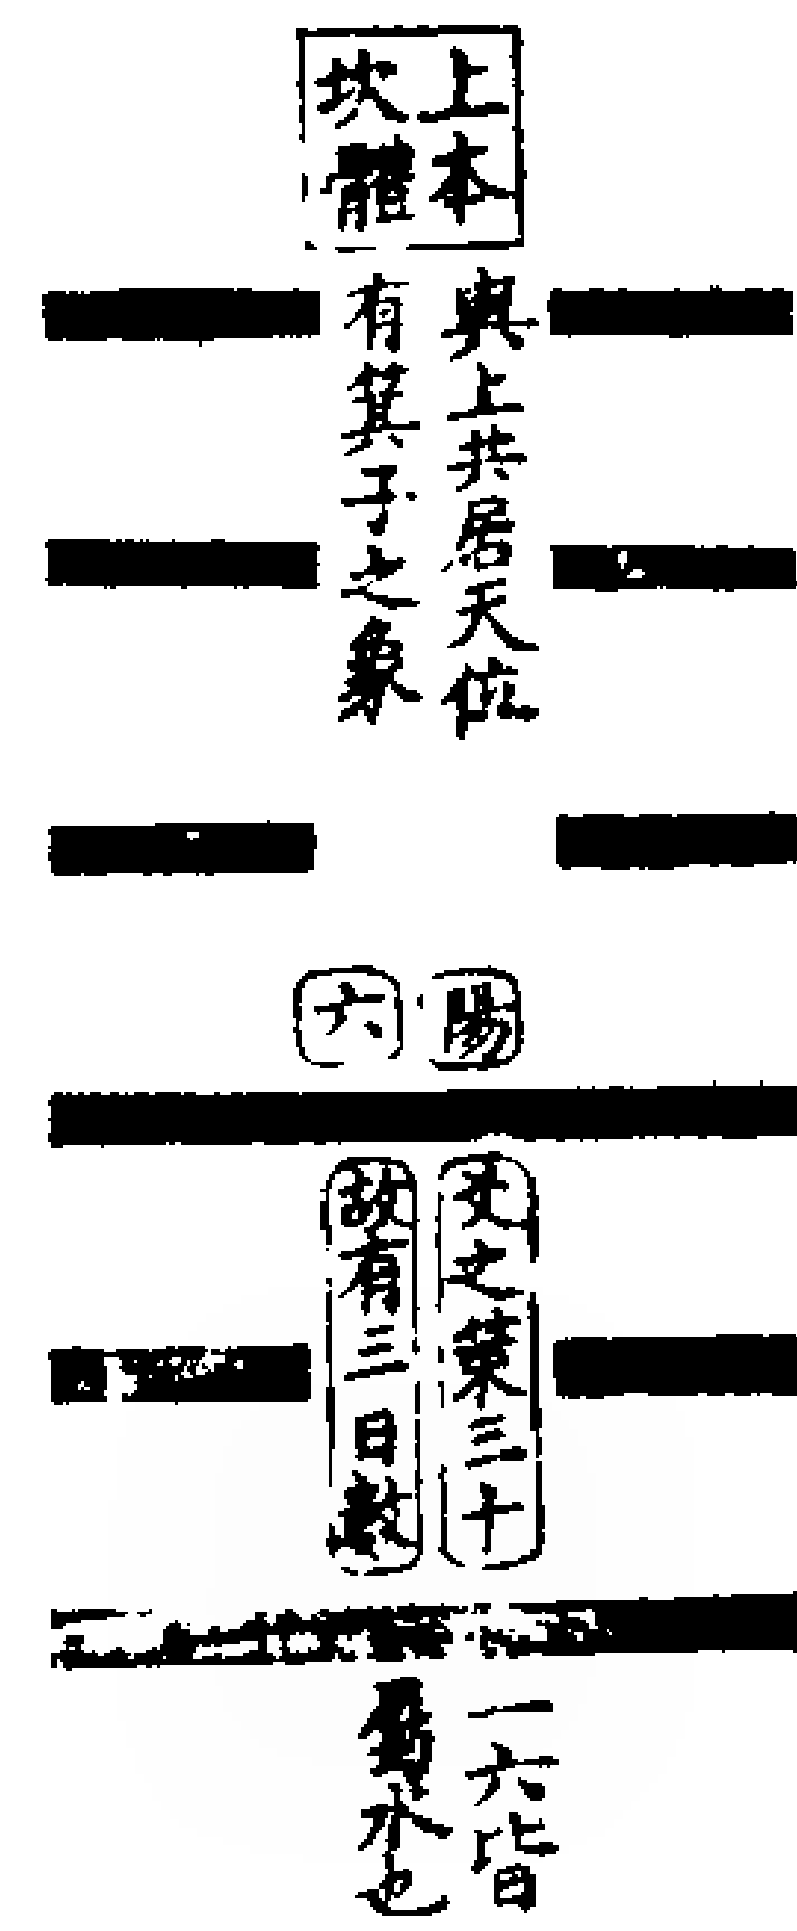 上本
坎體
與上共居天位
有箕子之象
陽
六
爻之策三十
故有三日數
一六皆
為水也